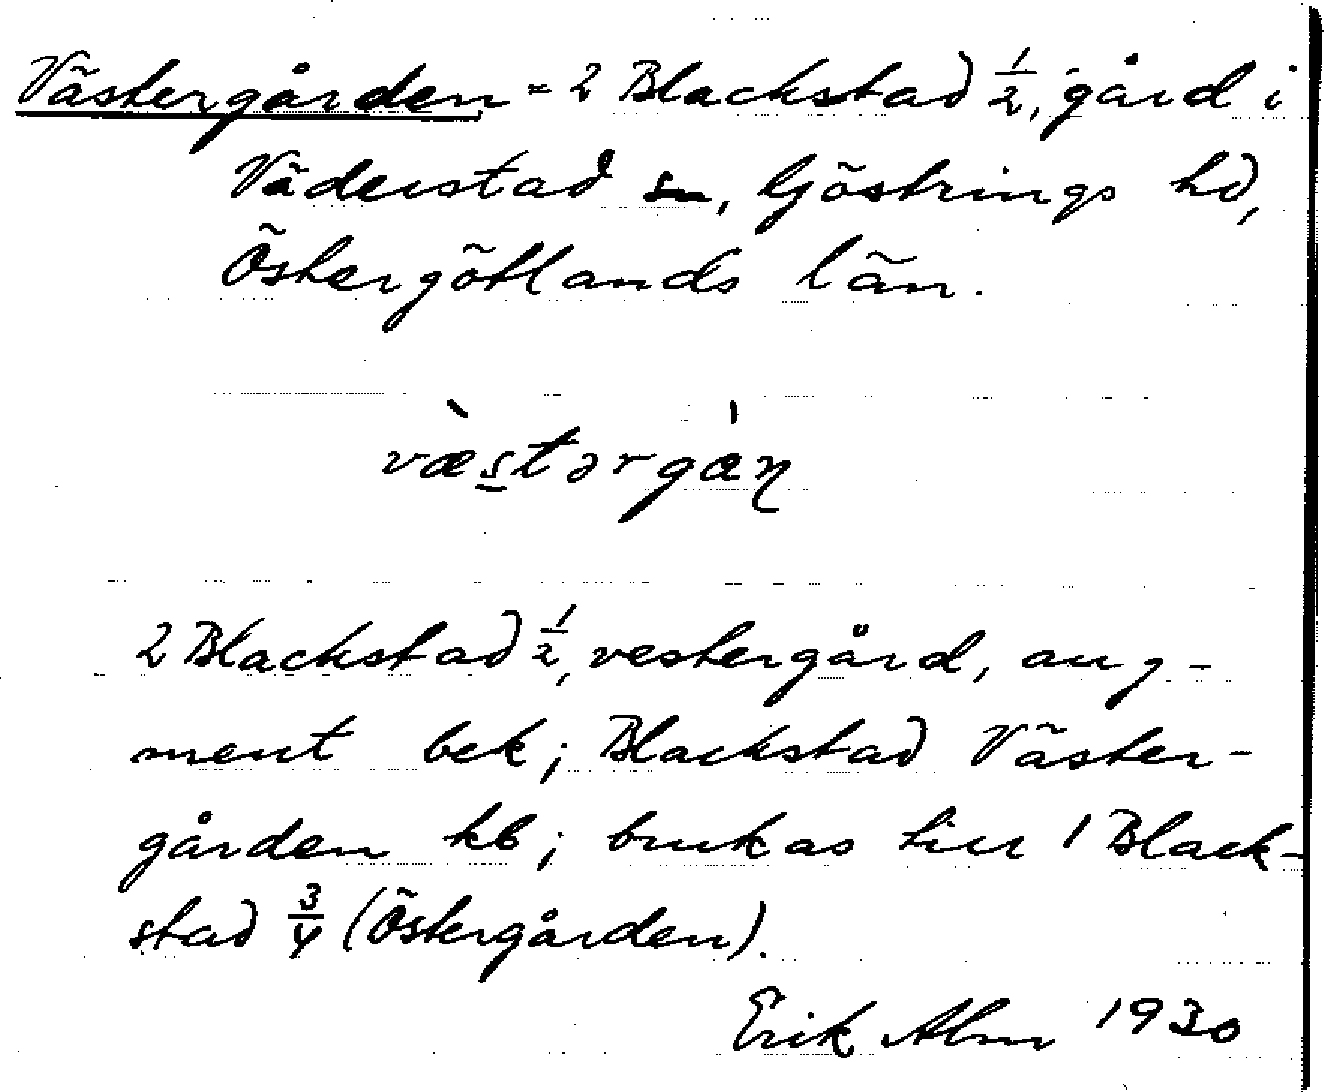 Västergården = 2 Blackstad 1/2, gård i
Väderstad sn, Göstrings hd,
Östergötlands län.
væstərgàn
2 Blackstad 1/2, vestergård, aug-
ment bek; Blackstad Väster-
gården kb; brukas till 1 Black-
stad 3/4 (Östergården).
Erik Alm 1930